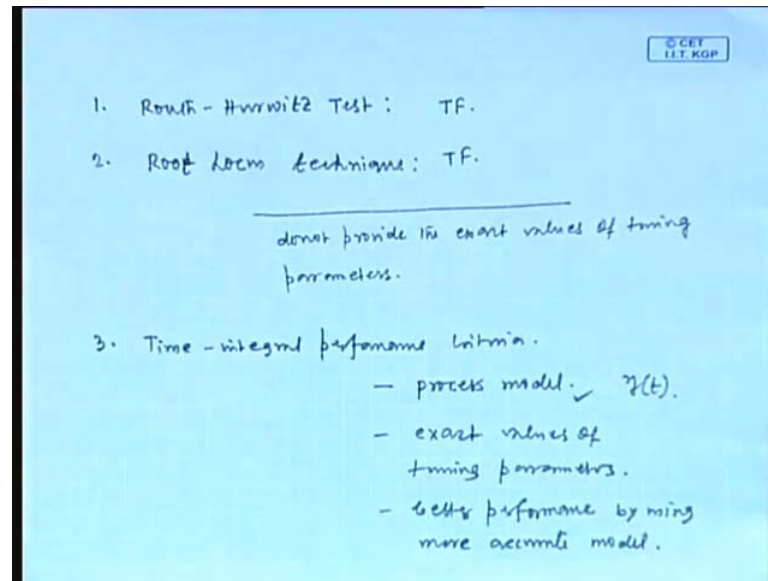 © CET
I.I.T. KGP
1. Routh - Hurwitz Test : TF.
2. Root Locus technique : TF.
donot provide the exact values of tuning
parameters.
3. Time - integral performance criteria.
- process model. ✓ y(t).
- exact values of
tuning parameters.
- better performance by using
more accurate model.